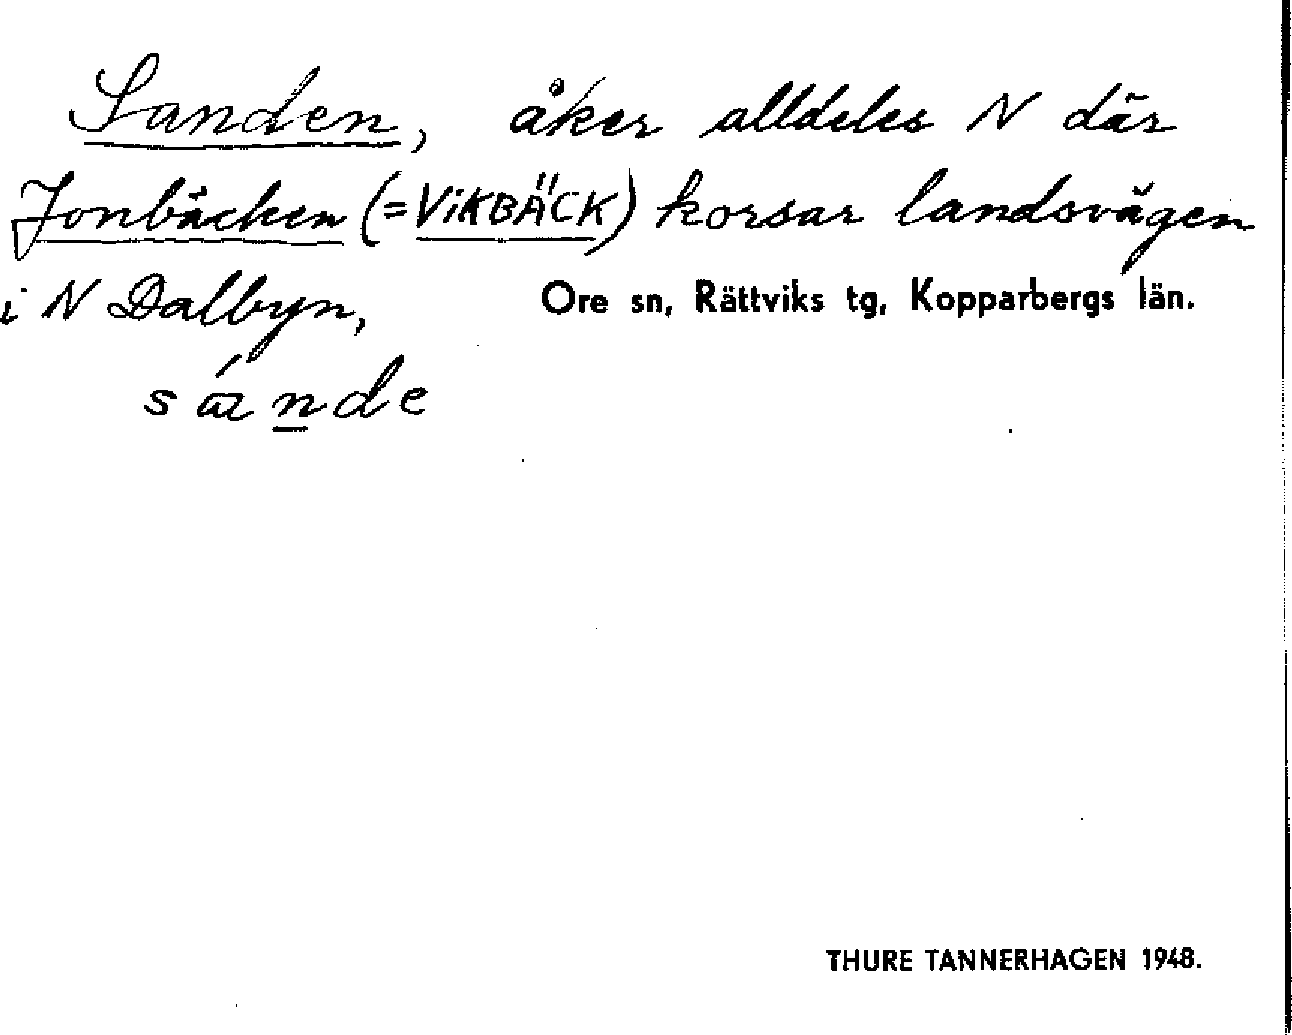 Sanden, åker alldeles N där
Jonbäcken (=VIKBÄCK) korsar landsvägen
i N Dalbyn, Ore sn, Rättviks tg, Kopparbergs län.
sánde
THURE TANNERHAGEN 1948.